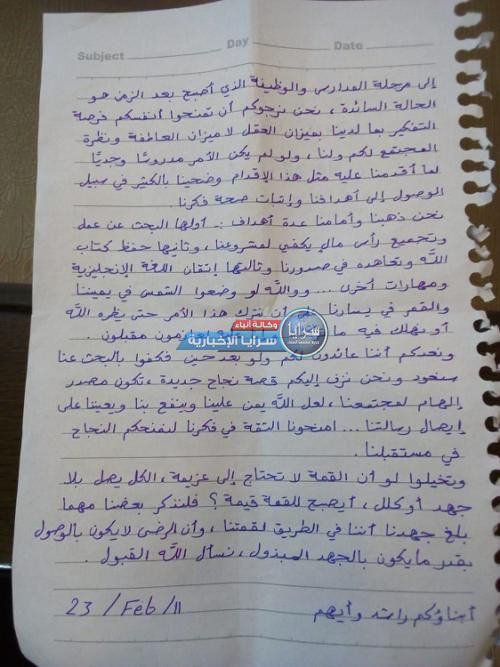 Subject
Day
Date
إلى مرحلة المدارس والوظيفة الذي أصبح بعد الزمن هو
الحالة السائدة، نحن نرجوكم أن تمنحوا أنفسكم فرصة
التفكير بما لدينا بميزان العقل لا ميزان العاطفة ونظرة
المجتمع لكم ولنا، ولو لم يكن الأمر مدروسًا وجديًا
لما أقدمنا عليه مثل هذا الإقدام وضحينا بالكثير في سبيل
الوصول إلى أهدافنا وإثبات صحة فكرنا.
نحن ذهبنا وأمامنا عدة أهداف :- أولها البحث عن عمل
وتجميع رأس مالٍ يكفي لمشروعنا، وثانيها حفظ كتاب
اللّه وتعاهده في صدورنا وثالثها إتقان اللغة الإنجليزية
ومهارات أخرى... وواللّه لو وضعوا الشمس في يميننا
والقمر في يسارنا على أن نترك هذا الأمر حتى يظهره اللّه
أو نهلك فيه ما مقبلون.
وكالة أنباء
سرايا الإخبارية
سرايا
ونعدكم أننا عائدون لكم ولو بعد حين، فكفوا بالبحث عنا
سنعود ونحن نزف إليكم قصة نجاح جديدة، تكون مصدر
إلهام لمجتمعنا، لعل اللّه يمن علينا وينفع بنا ويعيننا على
إيصال رسالتنا... امنحونا الثقة في فكرنا لنمنحكم النجاح
في مستقبلنا.
وتخيلوا لو أن القمة لا تحتاج إلى عزيمة، الكل يصل بلا
جهد أو كلل، أيصبح للقمة قيمة؟ فلنذكر بعضنا مهما
بلغ جهدنا أننا في الطريق لقمتنا، وأن الرضى لا يكون بالوصول
بقدر ما يكون بالجهد المبذول، نسأل اللّه القبول.
أبناؤكم راشد وأيهم
23 / Feb / 11